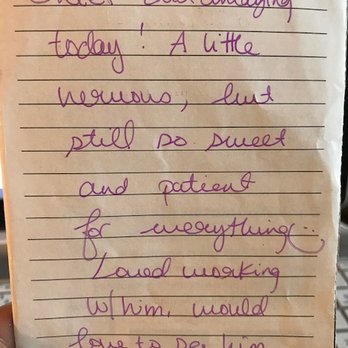 amazing
today! A little
nervous, but
still so sweet
and patient
for everything :)
Loved working
w/him, would
love to see him